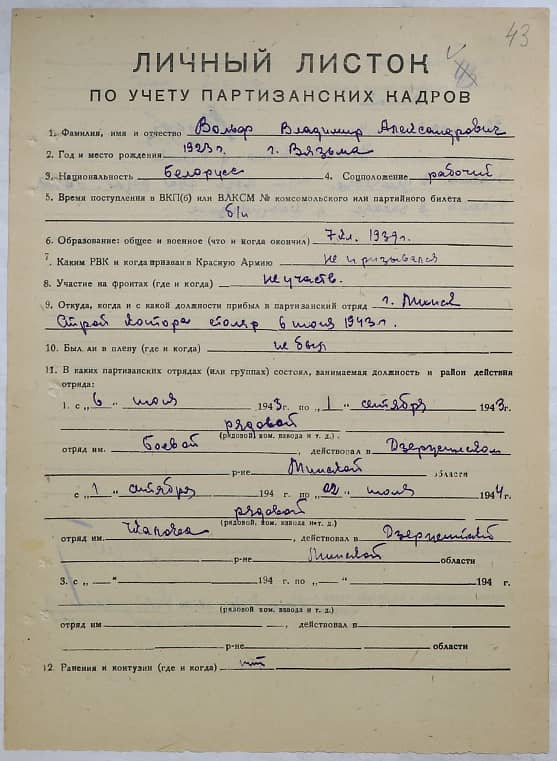 43
ЛИЧНЫЙ ЛИСТОК
ПО УЧЕТУ ПАРТИЗАНСКИХ КАДРОВ
1. Фамилия, имя и отчество Вольф Владимир Александрович
2. Год и место рождения 1923 г. г. Вязьма
3. Национальность белорусс 4. Соцположение рабочий
5. Время поступления в ВКП(б) или ВЛКСМ № комсомольского или партийного билета
б/п
6. Образование: общее и военное (что и когда окончил) 7 кл. 1939 г.
7. Каким РВК и когда призван в Красную Армию не призывался
8. Участие на фронтах (где и когда) не участв.
9. Откуда, когда и с какой должности прибыл в партизанский отряд г. Минск
Строй контора столяр 6 июля 1943 г.
10. Был ли в плену (где и когда) не был
11. В каких партизанских отрядах (или группах) состоял, занимаемая должность и район действия
отряда:
1. с „6" июля 1943 г. по „1" сентября 1943 г.
рядовой
(рядовой ком. взвода и т. д.)
отряд им. боевой, действовал в Дзержинском
р-не Минской области
с „1" сентября 194 г. по „02" июля 1944 г.
рядовой
(рядовой, ком. взвода и т. д.)
отряд им, действовал в Дзержинский
р-не Минской области
3. с „—" 194 г. по „—" 194 г.
(рядовой ком. взвода и т. д.)
отряд им, действовал в
р-не области
12. Ранения и контузии (где и когда) нет